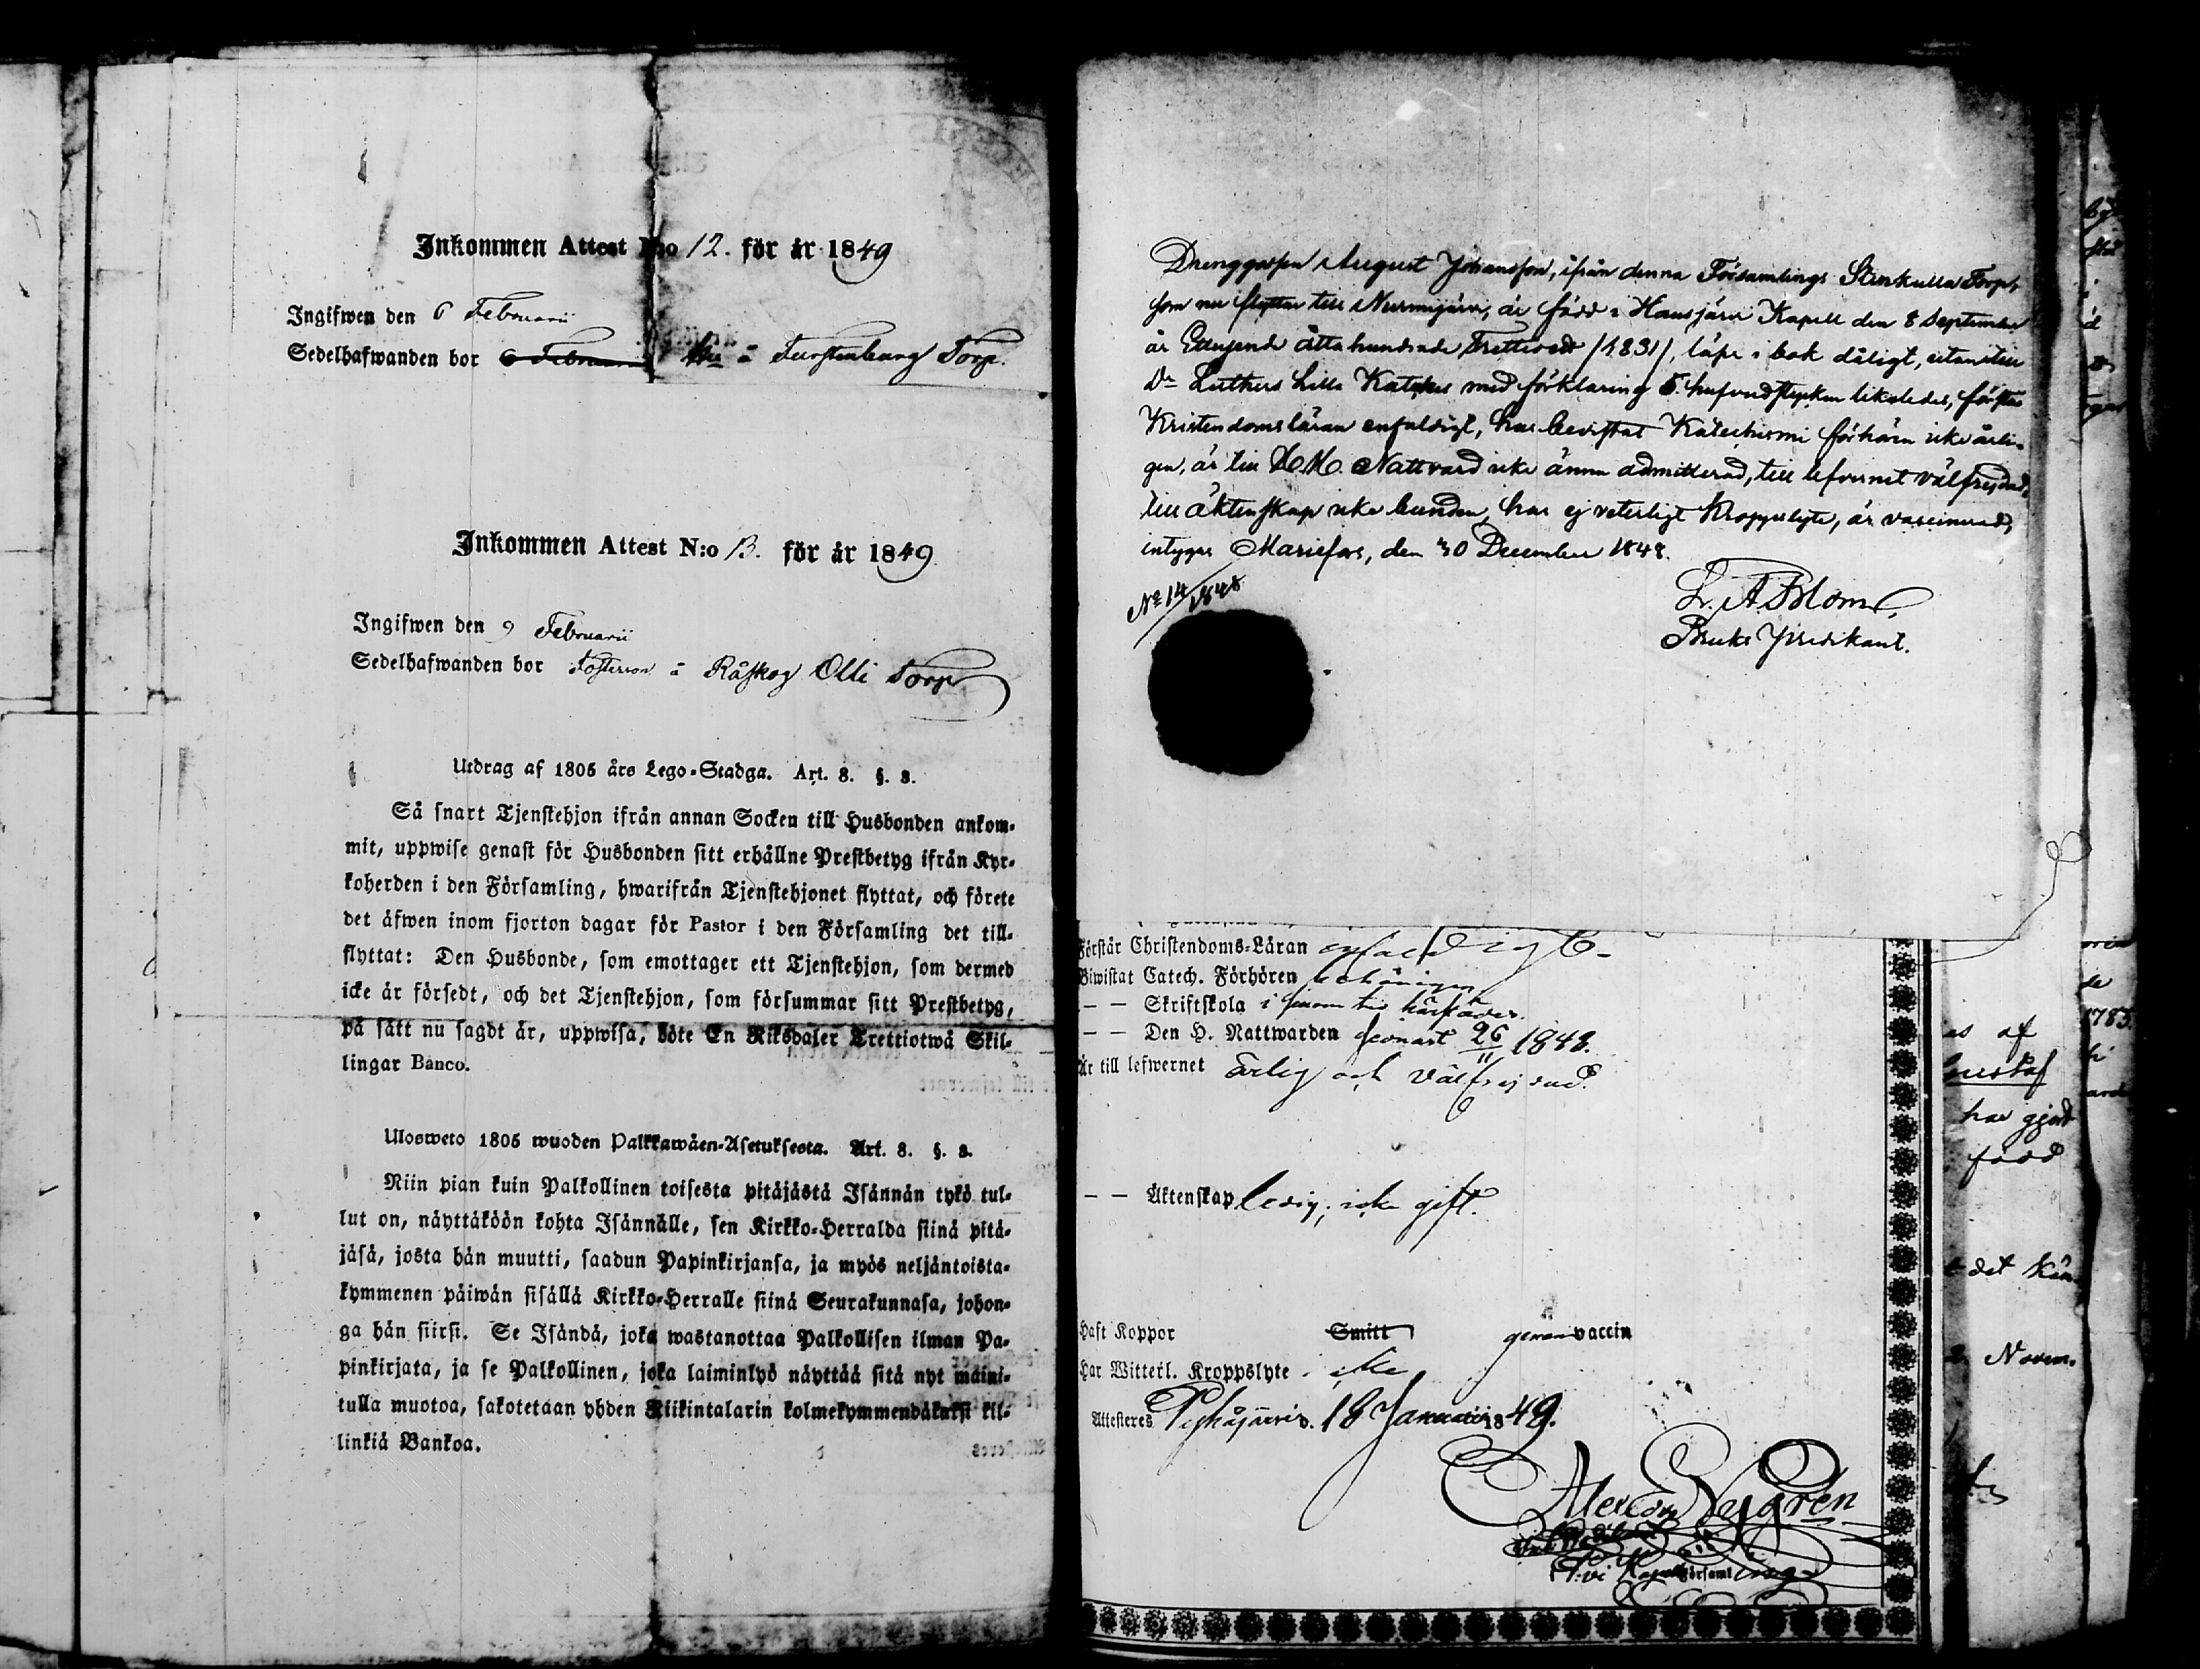 Inkommen Attest N:o 12. för år 1849
Ingifwen den 6 Februarii
Sedelhafwanden bor å Furstenburg Torp.
Inkommen Attest N:o 13. för år 1849
Ingifwen den 9 Februarii
Sedelhafwanden bor Fosterson å Råskog Olli Torp
Utdrag af 1805 års Lego-Stadga. Art. 8. §. 8.
Så snart Tjenstehjon ifrån annan Socken till Husbonden ankom-
mit, uppwise genast för Husbonden sitt erhållne Prestbetyg ifrån Kyr-
koherden i den Församling, hwarifrån Tjenstehjonet flyttat, och förete
det äfwen inom fjorton dagar för Pastor i den Församling det till-
flyttat: Den Husbonde, som emottager ett Tjenstehjon, som dermed
icke är försedt, och det Tjenstehjon, som försummar sitt Prestbetyg,
på sätt nu sagdt är, uppwisa, böte En Riksdaler Trettiotwå Skil-
lingar Banco.
Ulosweto 1805 wuoden Palkkawäen-Asetuksesta. Art. 8. §. 8.
Niin pian kuin Palkollinen toisesta pitäjästä Isännän tykö tul-
lut on, näyttäköön kohta Isännälle, sen Kirkko-Herralda siinä pitä-
jäsä, josta hän muutti, saadun Papinkirjansa, ja myös neljäntoista-
kymmenen päiwän sisällä Kirkko-Herralle siinä Seurakunnasa, johon-
ga hän siirsi. Se Isändä, joka wastanottaa Palkollisen ilman Pa-
pinkirjata, ja se Palkollinen, joka laiminlyö näyttää sitä nyt maini-
tulla muotoa, sakotetaan yhden Riikintalarin kolmekymmendäkaksi kil-
linkiä Bankoa.
Drenggossen August Johansson, ifrån denna Församlings Stenkulla Torp,
som nu flyttar till Nurmijärvi, är född i Hausjärvi Kapell den 8 September
år Ettusend åtta hundrade Trettioett /1831/, läser i bok dåligt, utantill
Dr Luthers Lilla Katekes med förklaring 5. hufvudstycken likaledes, förstår
Kristendomsläran enfaldigt, har bevistat Katechismi förhören icke årli-
gen, är till H. H. Nattvard icke ännu admitterad, till lefvernet välfrejdad,
till äktenskap icke bunden, har ej veterligt Kroppslyte, är vaccinerad,
intygar Mariefors, den 30 December 1848.
No 14/1848
L. A. Blom,
Bruks Predikant.
Förstår Christendoms-Läran enfaldigt.
Biwistat Catech. Förhören
— — Skriftskola i
— — Den H. Nattwarden senast 26/11 1848.
Är till lefwernet ärlig och välfrejdad.
— — Äktenskap ledig, icke gift.
Haft Koppor Smitt genom vaccin
Har Witterl. Kroppslyte icke
Attesteres d. 18 Januarii 1849.
Alexander Nygrén
Församling
as af
Gustaf
har gjort
född
det
Novem.
1783.